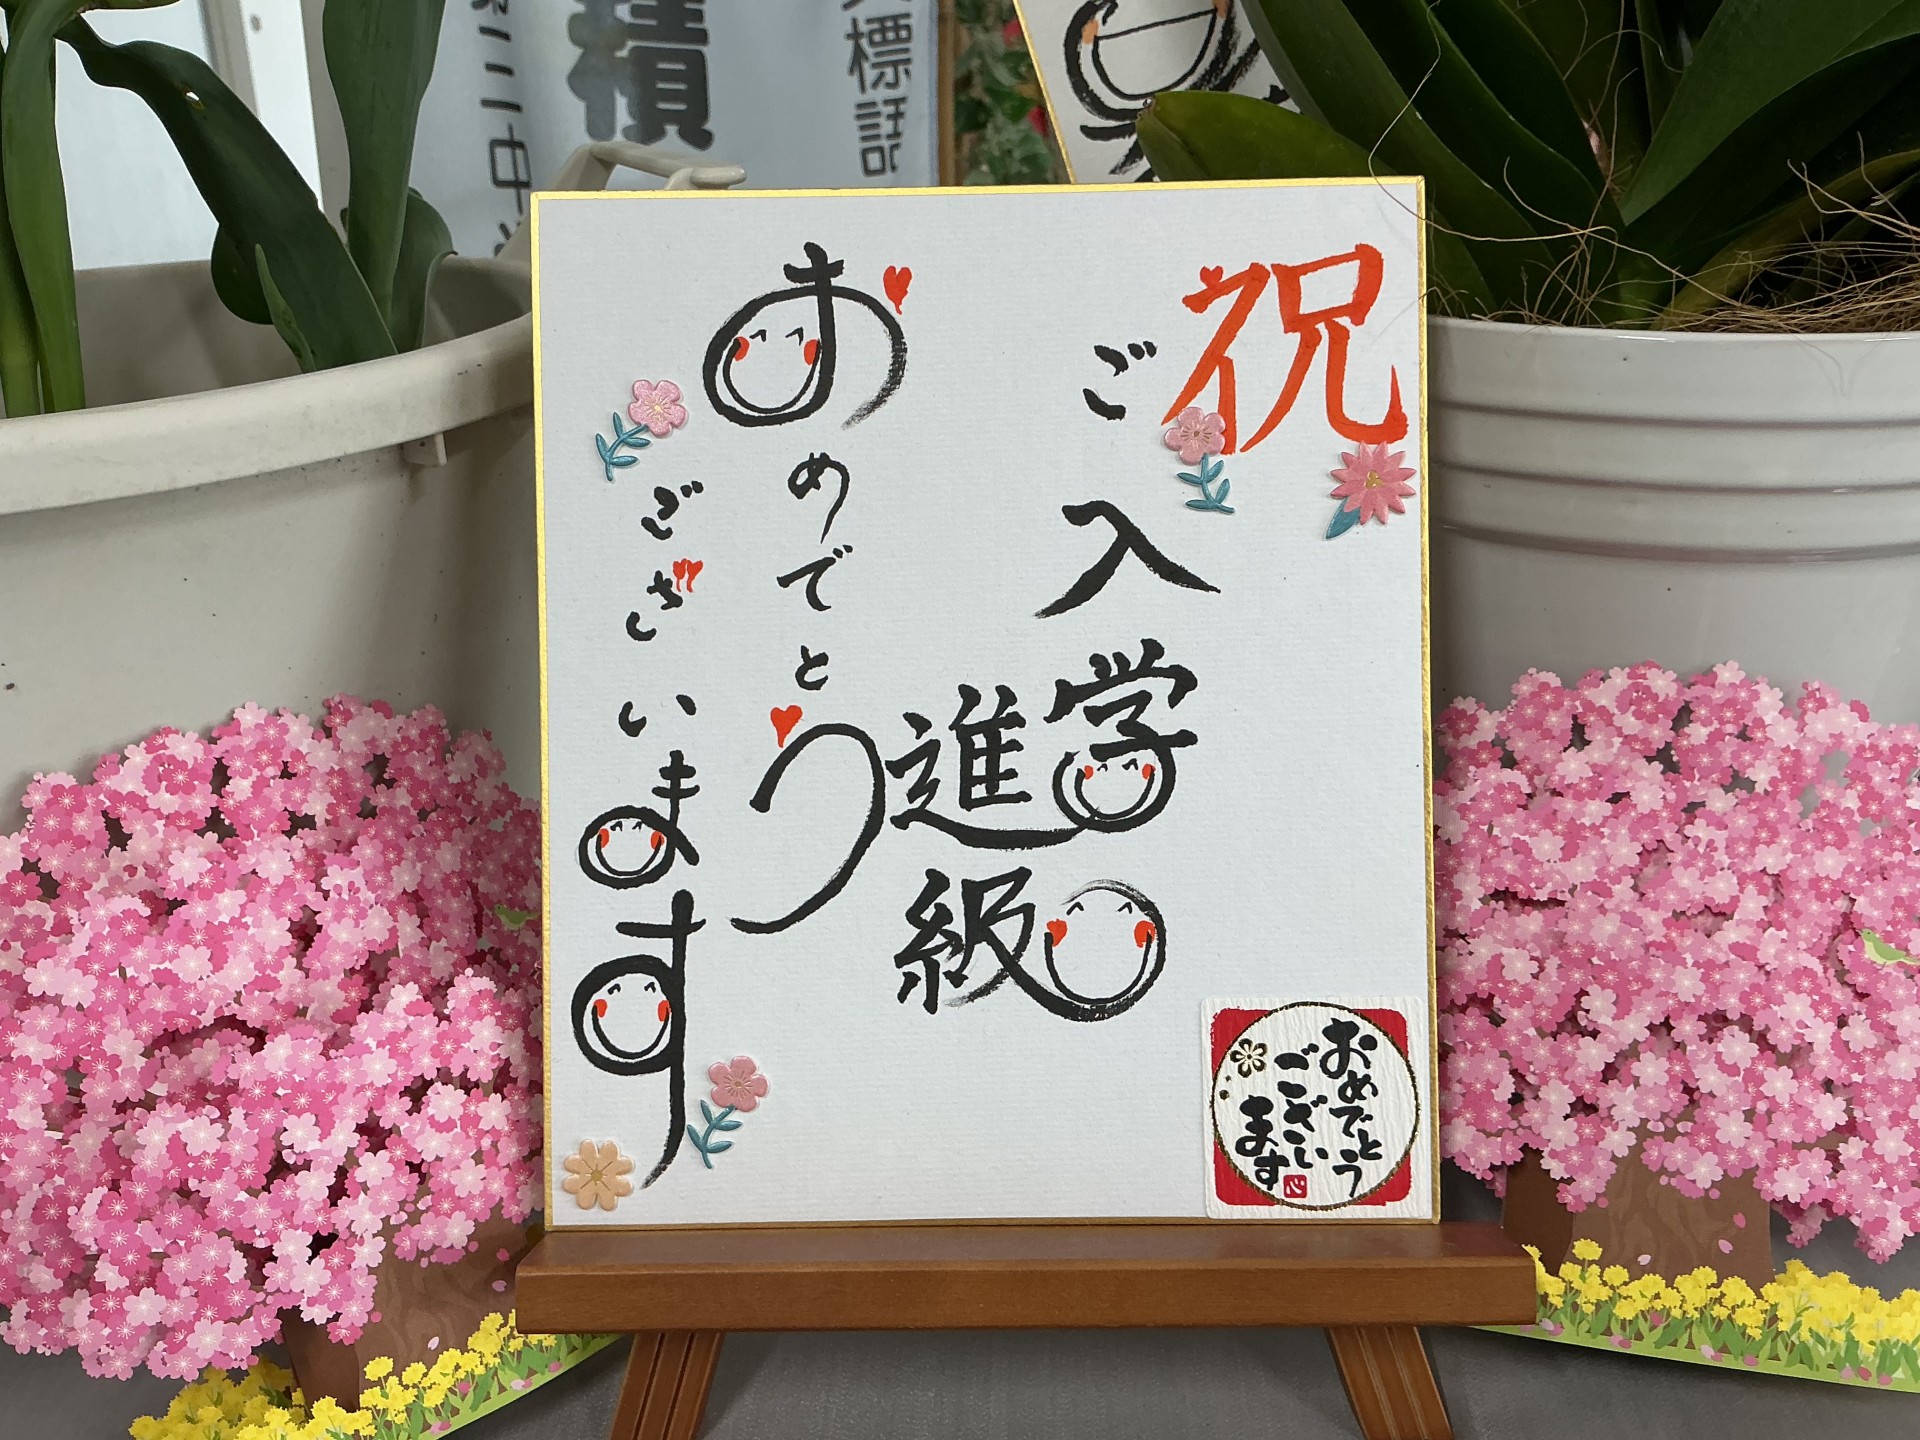 祝
ご入学
進級
おめでとう
ございます
おめでとう
ござい
ます
心
積
標語
二中